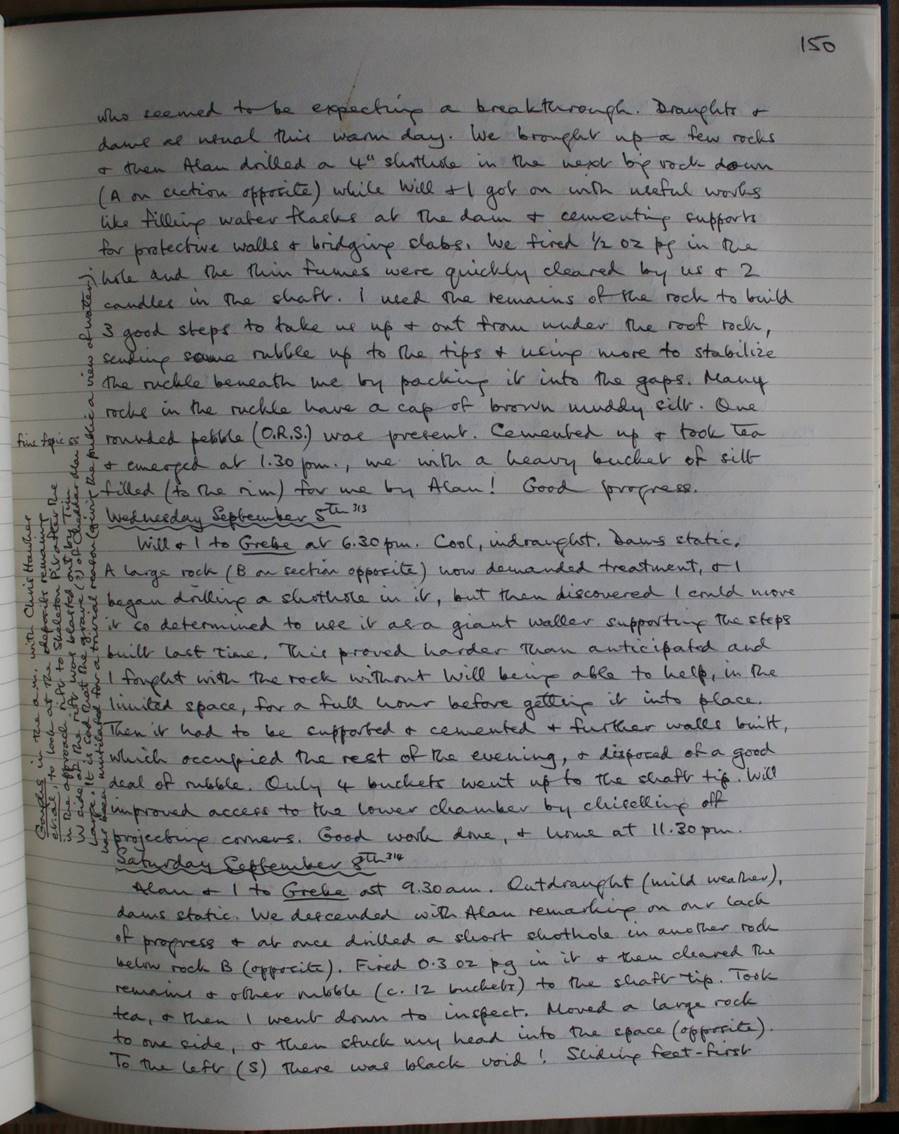 150
who seemed to be expecting a breakthrough. Draughts &
dams as usual this warm day. We brought up a few rocks
& then Alan drilled a 4" shothole in the next big rock down
(A on section opposite) while Will & I got on with useful works
like filling water flasks at the dam & cementing supports
for protective walls & bridging slabs. We fired ½ oz pg in the
hole and the thin fumes were quickly cleared by us & 2
candles in the shaft. I used the remains of the rock to build
3 good steps to take us up & out from under the roof rock,
sending some rubble up to the tips & using more to stabilize
the ruckle beneath me by packing it into the gaps. Many
rocks in the ruckle have a cap of brown muddy silt. One
rounded pebble (O.R.S.) was present. Cemented up & took tea
& emerged at 1.30 pm., me with a heavy bucket of silt
filled (to the rim) for me by Alan! Good progress.
Wednesday September 5th 313
Will & I to Grebe at 6.30 pm. Cool, indraught. Dams static.
A large rock (B on section opposite) now demanded treatment, & I
began drilling a shothole in it, but then discovered I could move
it so determined to use it as a giant waller supporting the steps
built last time. This proved harder than anticipated and
I fought with the rock without Will being able to help, in the
limited space, for a full hour before getting it into place.
Then it had to be supported & cemented & further walls built,
which occupied the rest of the evening, & disposed of a good
deal of rubble. Only 4 buckets went up to the shaft tip. Will
improved access to the lower chamber by chiselling off
projecting corners. Good work done, & home at 11.30 pm.
Saturday September 8th 314
Alan & I to Grebe at 9.30 am. Outdraught (mild weather),
dams static. We descended with Alan remarking on our lack
of progress & at once drilled a short shothole in another rock
below rock B (opposite). Fired 0.3 oz pg in it & then cleared the
remains & other rubble (c. 12 buckets) to the shaft tip. Took
tea, & then I went down to inspect. Moved a large rock
to one side, & then stuck my head into the space (opposite).
To the left (S) there was black void! Sliding feet-first
Goughs in the a.m. with Chris Hawkes
et al. to look at the deposits remaining
in the approach rift to Skeleton Pit after the
W side of the rift was blasted out by Tim
large. It is sad that the grave (?) of Cheddar Man
has been mutilated for a trivial reason (giving the public a view of water).